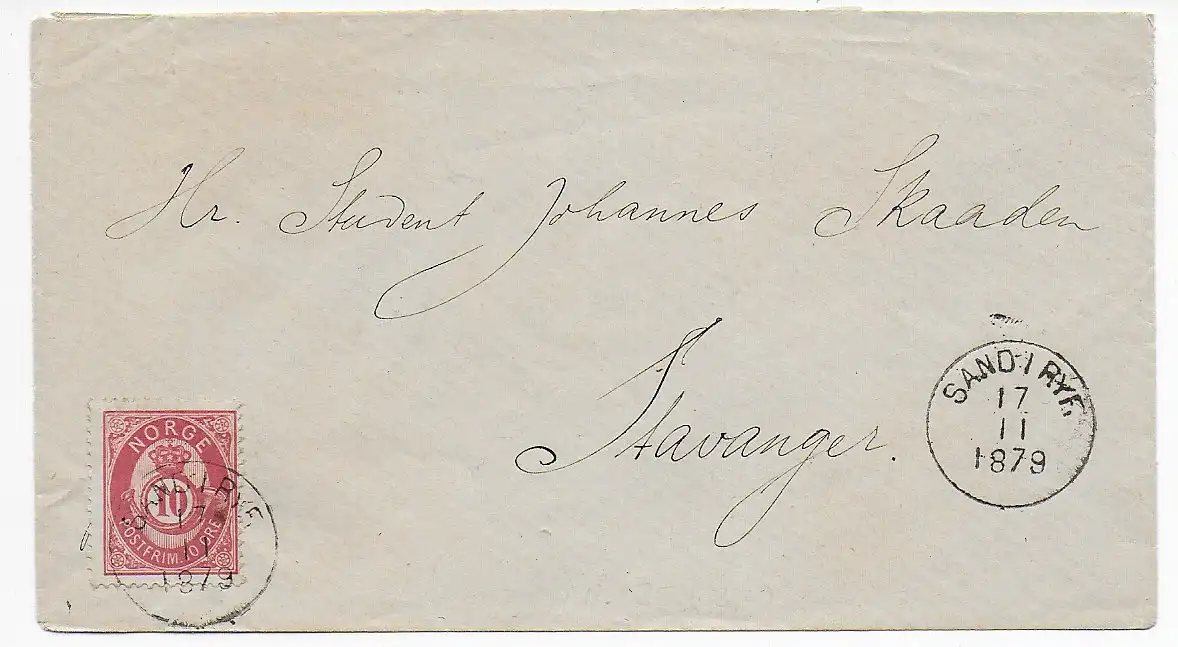 Hr. Student Johannes Skaaden
Stavanger.
SAND I RYF.
17
11
1879
NORGE
10
POSTFRIM. 10 ØRE
SAND I RYF.
17
11
1879